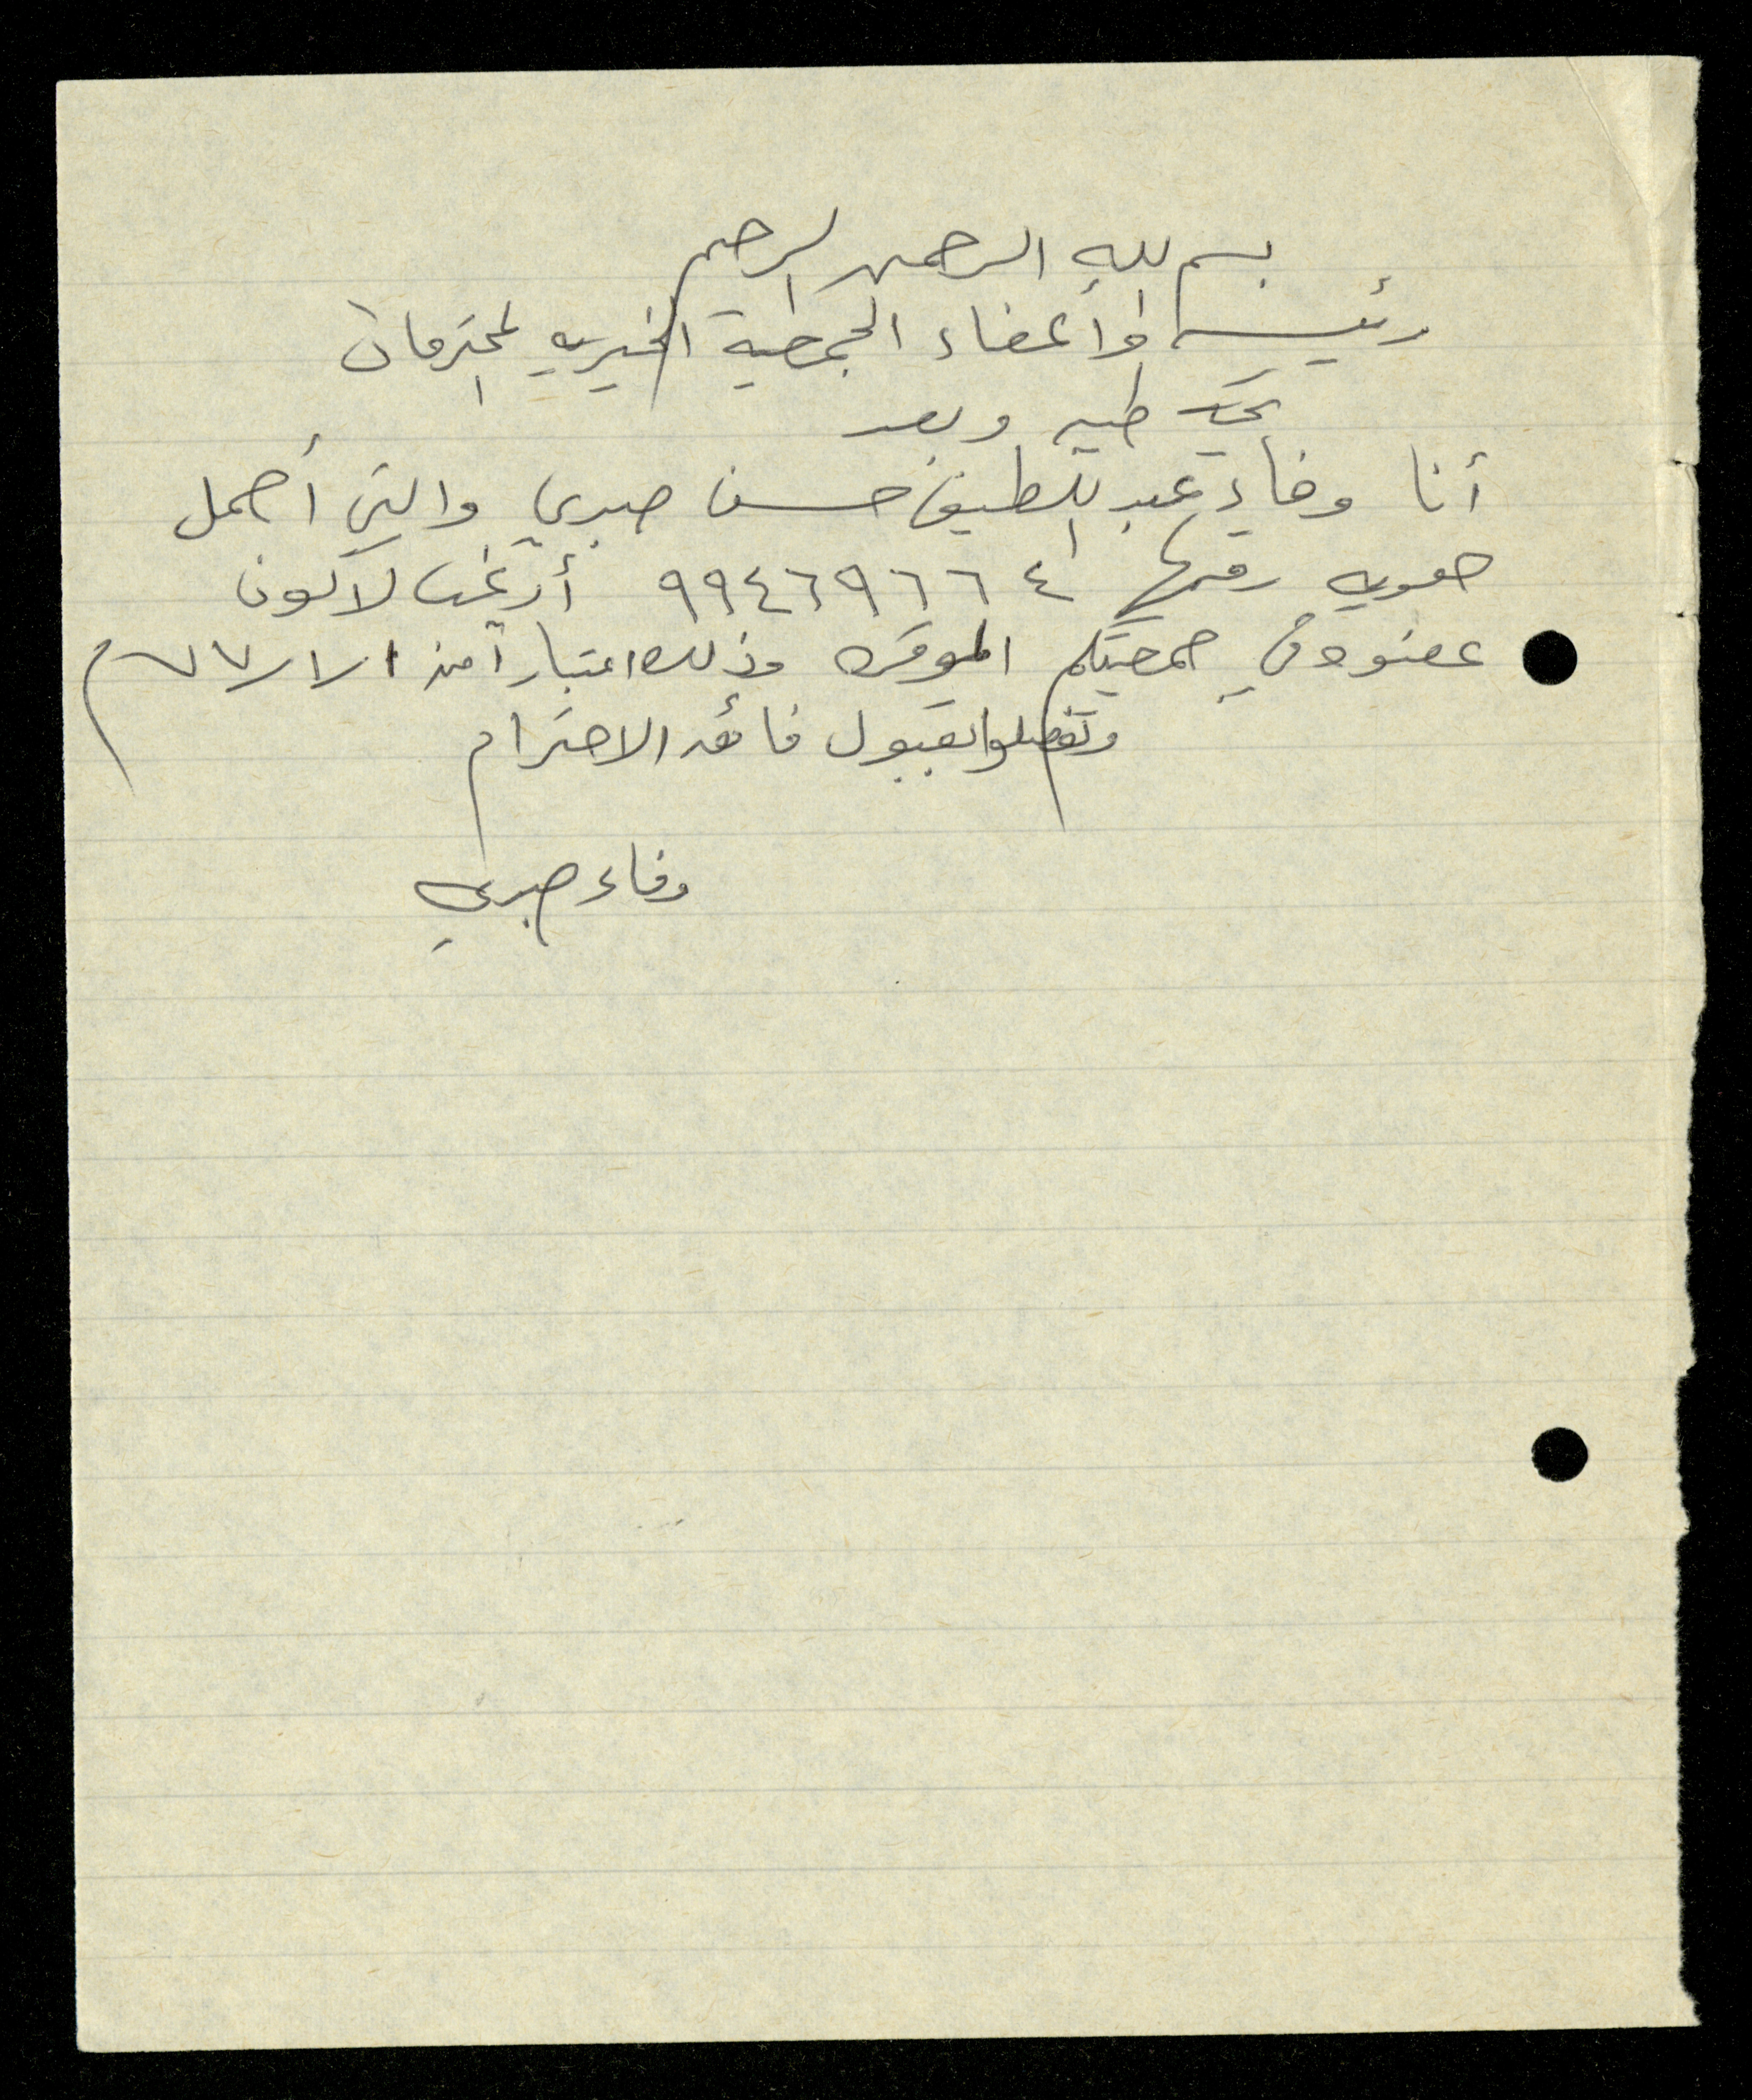 بسم الله الرحمن الرحيم
رئيسة وأعضاء الجمعية الخيريه المحترمات
تحيه طيبه وبعد
أنا وفاء عبد اللطيف حسن صبري والتي أحمل
هويه رقمها ٩٩٤٦٩٦٦٤ أرغب لاكون
عضوه في جمعيتكم الموقره وذلك اعتباراً من
وتفضلوا بقبول فائق الاحترام
وفاء صبري